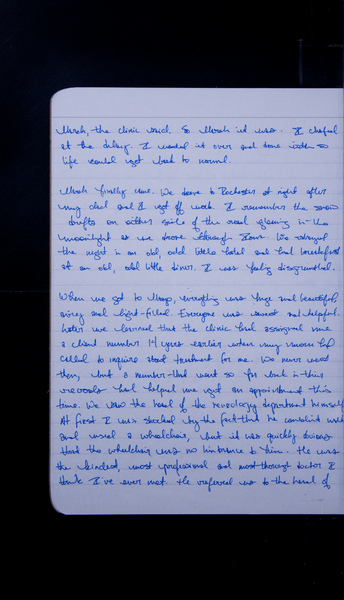 March, the clinic said. So March it was. I chafed
at the delay. I wanted it over and done with so
life could get back to normal.
March finally came. We drove to Rochester at night after
my dad and I got off work. I remember the snow
drifts on either side of the road glowing in the
moonlight as we drove through Iowa. We stayed
the night in an old, odd little hotel and had breakfast
at an old, odd little diner. I was feeling disgruntled.
When we got to Mayo, everything was huge and beautiful,
airy and light-filled. Everyone was smart and helpful.
Later we learned that the clinic had assigned me
a client number 14 years earlier when my mom had
called to inquire about treatment for me. We never went
then, but a number that went so far back in their
records had helped me get an appointment this
time. We saw the head of the neurology department himself.
At first I was shocked by the fact that he couldn't walk
and used a wheelchair, but it was quickly obvious
that the wheelchair was no hindrance to him. He was
the kindest, most professional and most thorough doctor I
think I've ever met. He referred us to the head of